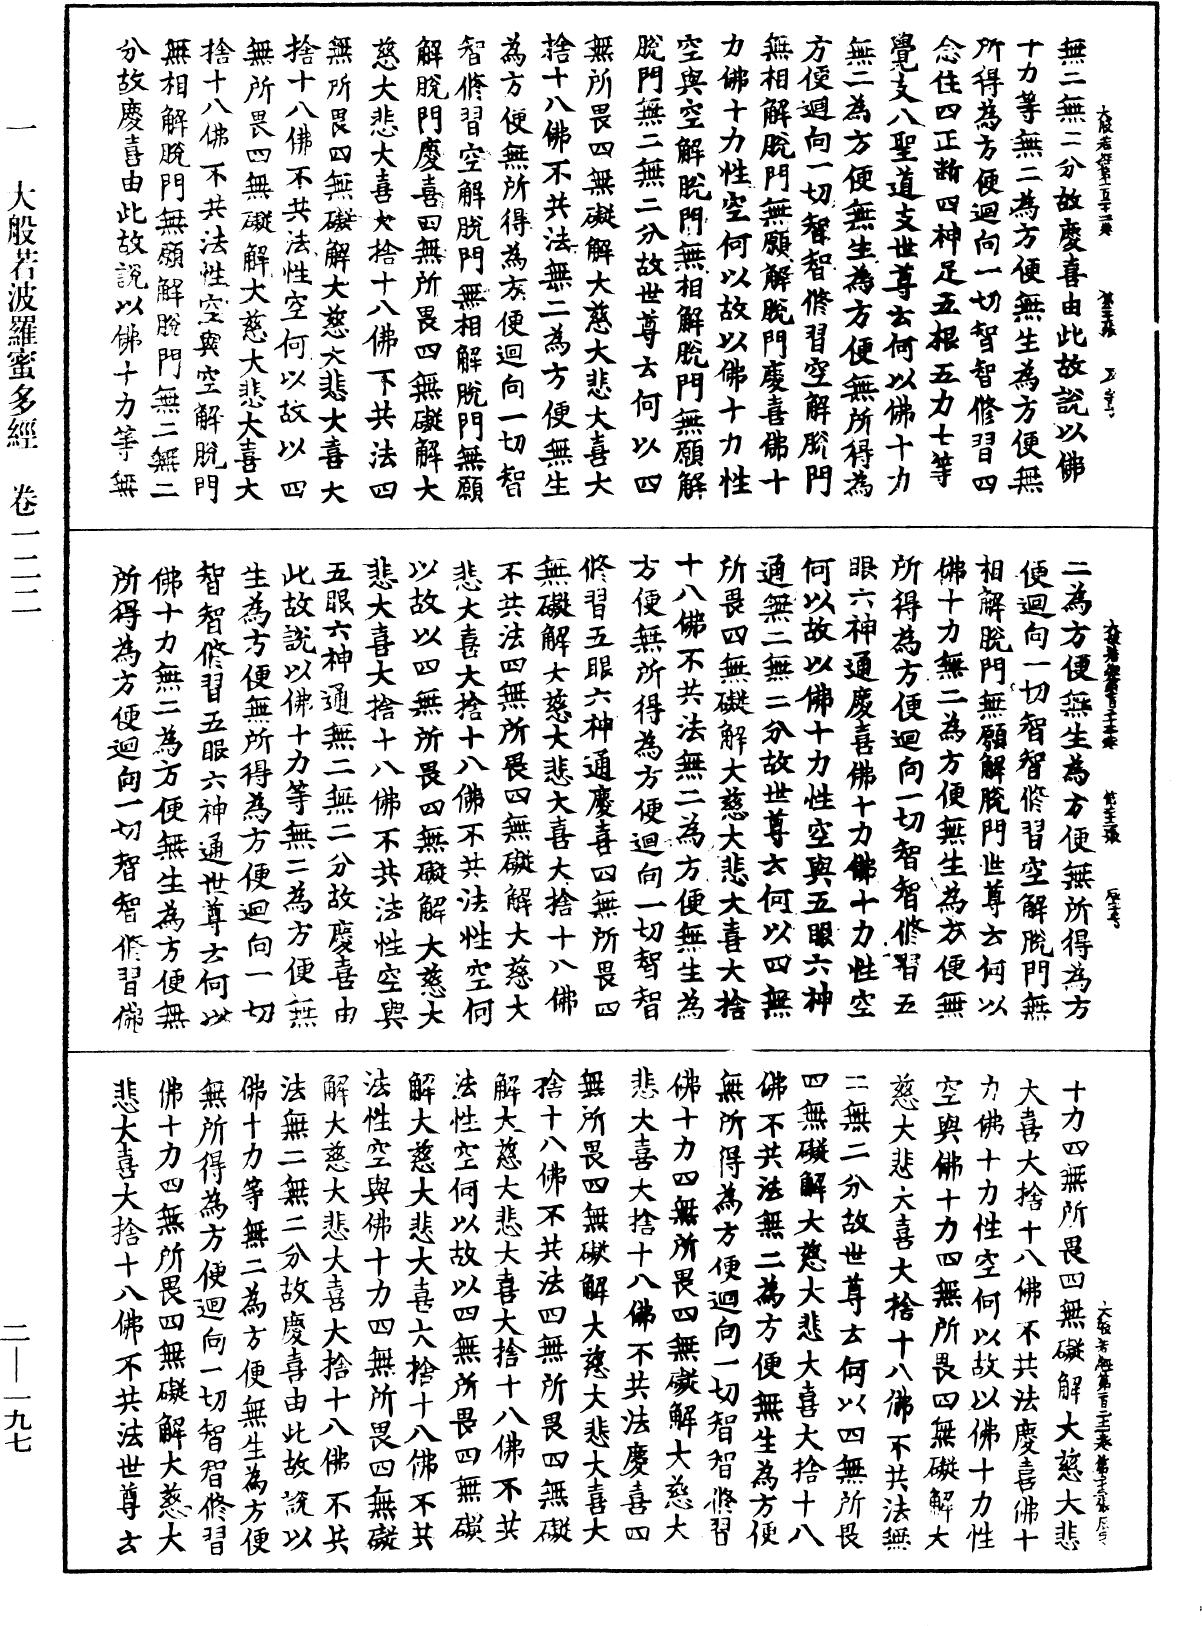 無二無二分故慶喜由此故說以佛
十力等無二為方便無生為方便無
所得為方便迴向一切智智修習四
念住四正斷四神足五根五力七等
覺支八聖道支世尊云何以佛十力
無二為方便無生為方便無所得為
方便迴向一切智智修習空解脫門
無相解脫門無願解脫門慶喜佛十
力佛十力性空何以故以佛十力性
空與空解脫門無相解脫門無願解
脫門無二無二分故世尊云何以四
無所畏四無礙解大慈大悲大喜大
捨十八佛不共法無二為方便無生
為方便無所得為方便迴向一切智
智修習空解脫門無相解脫門無願
解脫門慶喜四無所畏四無礙解大
慈大悲大喜大捨十八佛不共法四
無所畏四無礙解大慈大悲大喜大
捨十八佛不共法性空何以故以四
無所畏四無礙解大慈大悲大喜大
捨十八佛不共法性空與空解脫門
無相解脫門無願解脫門無二無二
分故慶喜由此故說以佛十力等無
二為方便無生為方便無所得為方
便迴向一切智智修習空解脫門無
相解脫門無願解脫門世尊云何以
佛十力無二為方便無生為方便無
所得為方便迴向一切智智修習五
眼六神通慶喜佛十力佛十力性空
何以故以佛十力性空與五眼六神
通無二無二分故世尊云何以四無
所畏四無礙解大慈大悲大喜大捨
十八佛不共法無二為方便無生為
方便無所得為方便迴向一切智智
修習五眼六神通慶喜四無所畏四
無礙解大慈大悲大喜大捨十八佛
不共法四無所畏四無礙解大慈大
悲大喜大捨十八佛不共法性空何
以故以四無所畏四無礙解大慈大
悲大喜大捨十八佛不共法性空與
五眼六神通無二無二分故慶喜由
此故說以佛十力等無二為方便無
生為方便無所得為方便迴向一切
智智修習五眼六神通世尊云何以
佛十力無二為方便無生為方便無
所得為方便迴向一切智智修習佛
十力四無所畏四無礙解大慈大悲
大喜大捨十八佛不共法慶喜佛十
力佛十力性空何以故以佛十力性
空與佛十力四無所畏四無礙解大
慈大悲大喜大捨十八佛不共法無
二無二分故世尊云何以四無所畏
四無礙解大慈大悲大喜大捨十八
佛不共法無二為方便無生為方便
無所得為方便迴向一切智智修習
佛十力四無所畏四無礙解大慈大
悲大喜大捨十八佛不共法慶喜四
無所畏四無礙解大慈大悲大喜大
捨十八佛不共法四無所畏四無礙
解大慈大悲大喜大捨十八佛不共
法性空何以故以四無所畏四無礙
解大慈大悲大喜大捨十八佛不共
法性空與佛十力四無所畏四無礙
解大慈大悲大喜大捨十八佛不共
法無二無二分故慶喜由此故說以
佛十力等無二為方便無生為方便
無所得為方便迴向一切智智修習
佛十力四無所畏四無礙解大慈大
悲大喜大捨十八佛不共法世尊云
一 大般若波羅蜜多經 卷一二二
二—一九七